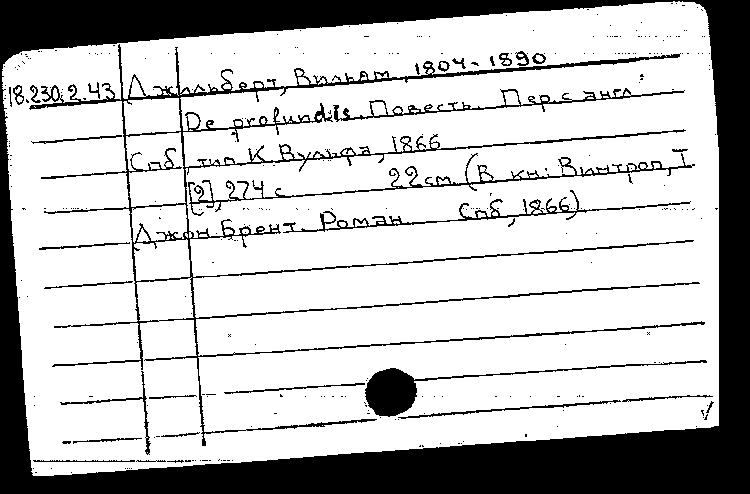 18.230.2.43 Джильберт, Вильям, 1804-1890
De profundis. Повесть. Пер. с англ.
Спб, тип. К. Вульфа, 1866
[2], 274 с. 22 см. (В кн.: Винтроп, Т.
Джон Брент. Роман. Спб, 1866)